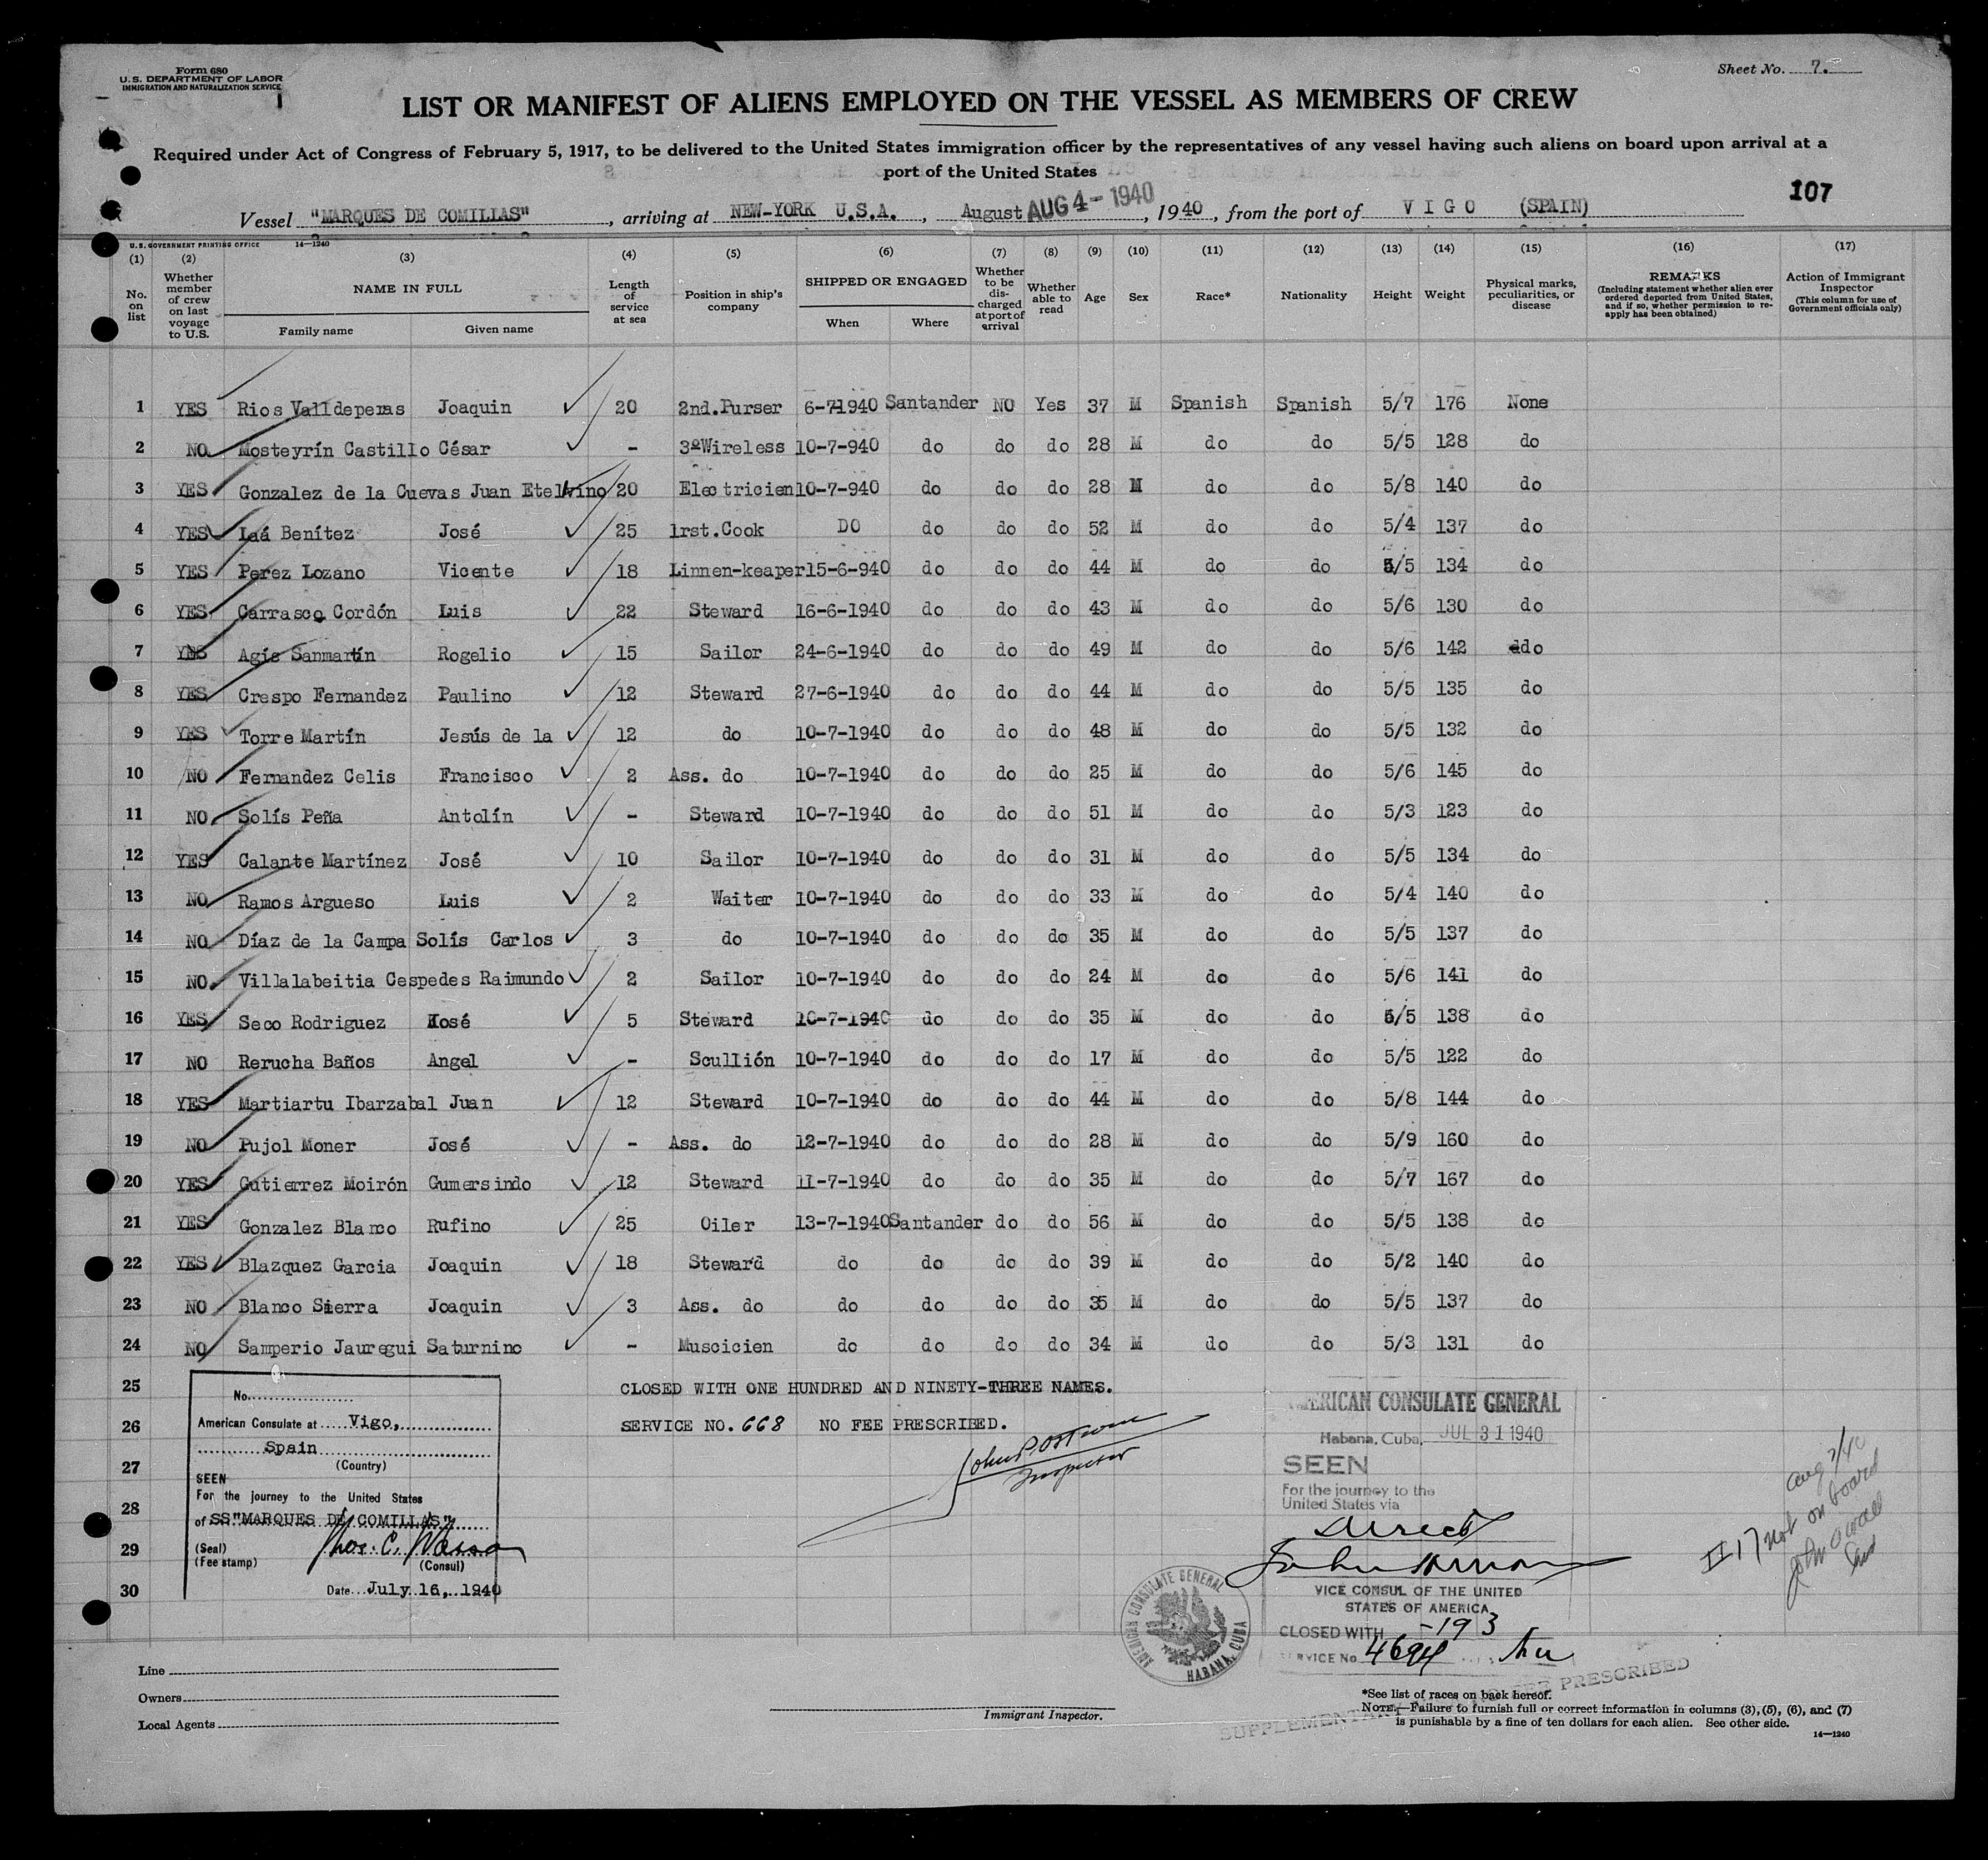 Form 680
U. S. DEPARTMENT OF LABOR
IMMIGRATION AND NATURALIZATION SERVICE
Sheet No. 7.
LIST OR MANIFEST OF ALIENS EMPLOYED ON THE VESSEL AS MEMBERS OF CREW
Required under Act of Congress of February 5, 1917, to be delivered to the United States immigration officer by the representatives of any vessel having such aliens on board upon arrival at a
port of the United States
107
Vessel "MARQUES DE COMILLAS", arriving at NEW-YORK U.S.A., August AUG 4 - 1940, 1940, from the port of VIGO (SPAIN)
U. S. GOVERNMENT PRINTING OFFICE 14—1240
(1) (2) (3) (4) (5) (6) (7) (8) (9) (10) (11) (12) (13) (14) (15) (16) (17)
No. on list
Whether member of crew on last voyage to U.S.
NAME IN FULL
Family name Given name
Length of service at sea
Position in ship's company
SHIPPED OR ENGAGED
When Where
Whether to be discharged at port of arrival
Whether able to read
Age
Sex
Race*
Nationality
Height
Weight
Physical marks, peculiarities, or disease
REMARKS
(Including statement whether alien ever ordered deported from United States, and if so, whether permission to re-apply has been obtained)
Action of Immigrant Inspector
(This column for use of Government officials only)
1 YES Rios Valldeperas Joaquin 20 2nd.Purser 6-7-1940 Santander NO Yes 37 M Spanish Spanish 5/7 176 None
2 NO Mosteyrín Castillo César - 3ªWireless 10-7-940 do do do 28 M do do 5/5 128 do
3 YES Gonzalez de la Cuevas Juan Etelvino 20 Electricien 10-7-940 do do do 28 M do do 5/8 140 do
4 YES Laá Benítez José 25 1rst.Cook DO do do do 52 M do do 5/4 137 do
5 YES Perez Lozano Vicente 18 Linnen-keaper 15-6-940 do do do 44 M do do 5/5 134 do
6 YES Carrasco Cordón Luis 22 Steward 16-6-1940 do do do 43 M do do 5/6 130 do
7 YES Agís Sanmartín Rogelio 15 Sailor 24-6-1940 do do do 49 M do do 5/6 142 ddo
8 YES Crespo Fernandez Paulino 12 Steward 27-6-1940 do do do 44 M do do 5/5 135 do
9 YES Torre Martín Jesús de la 12 do 10-7-1940 do do do 48 M do do 5/5 132 do
10 NO Fernandez Celis Francisco 2 Ass. do 10-7-1940 do do do 25 M do do 5/6 145 do
11 NO Solís Peña Antolín - Steward 10-7-1940 do do do 51 M do do 5/3 123 do
12 YES Calante Martínez José 10 Sailor 10-7-1940 do do do 31 M do do 5/5 134 do
13 NO Ramos Argueso Luis 2 Waiter 10-7-1940 do do do 33 M do do 5/4 140 do
14 NO Díaz de la Campa Solís Carlos 3 do 10-7-1940 do do do 35 M do do 5/5 137 do
15 NO Villalabeitia Cespedes Raimundo 2 Sailor 10-7-1940 do do do 24 M do do 5/6 141 do
16 YES Seco Rodriguez José 5 Steward 10-7-1940 do do do 35 M do do 5/5 138 do
17 NO Rerucha Baños Angel - Scullión 10-7-1940 do do do 17 M do do 5/5 122 do
18 YES Martiartu Ibarzabal Juan 12 Steward 10-7-1940 do do do 44 M do do 5/8 144 do
19 NO Pujol Moner José - Ass. do 12-7-1940 do do do 28 M do do 5/9 160 do
20 YES Gutierrez Moirón Gumersindo 12 Steward 11-7-1940 do do do 35 M do do 5/7 167 do
21 YES Gonzalez Blanco Rufino 25 Oiler 13-7-1940 Santander do do 56 M do do 5/5 138 do
22 YES Blazquez Garcia Joaquin 18 Steward do do do do 39 M do do 5/2 140 do
23 NO Blanco Sierra Joaquin 3 Ass. do do do do do 35 M do do 5/5 137 do
24 NO Samperio Jauregui Saturnino - Muscicien do do do do 34 M do do 5/3 131 do
25
26
27
28
29
30
CLOSED WITH ONE HUNDRED AND NINETY-THREE NAMES.
SERVICE NO. 668 NO FEE PRESCRIBED.
Inspector
No.
American Consulate at Vigo,
Spain
(Country)
SEEN
For the journey to the United States
of SS"MARQUES DE COMILLAS"
(Seal)
(Fee stamp)
Thos. C. Wasson
(Consul)
Date July 16, 1940
AMERICAN CONSULATE GENERAL
Habana, Cuba, JUL 31 1940
SEEN
For the journey to the
United States via
Direct
VICE CONSUL OF THE UNITED
STATES OF AMERICA
CLOSED WITH -193
SERVICE No. 4694
AMERICAN CONSULATE GENERAL
HABANA, CUBA
SUPPLEMENTAL NO FEE PRESCRIBED
Aug 7/40
#17 not on board
Line
Owners
Local Agents
Immigrant Inspector.
*See list of races on back hereof.
NOTE.—Failure to furnish full or correct information in columns (3), (5), (6), and (7)
is punishable by a fine of ten dollars for each alien. See other side.
14—1240